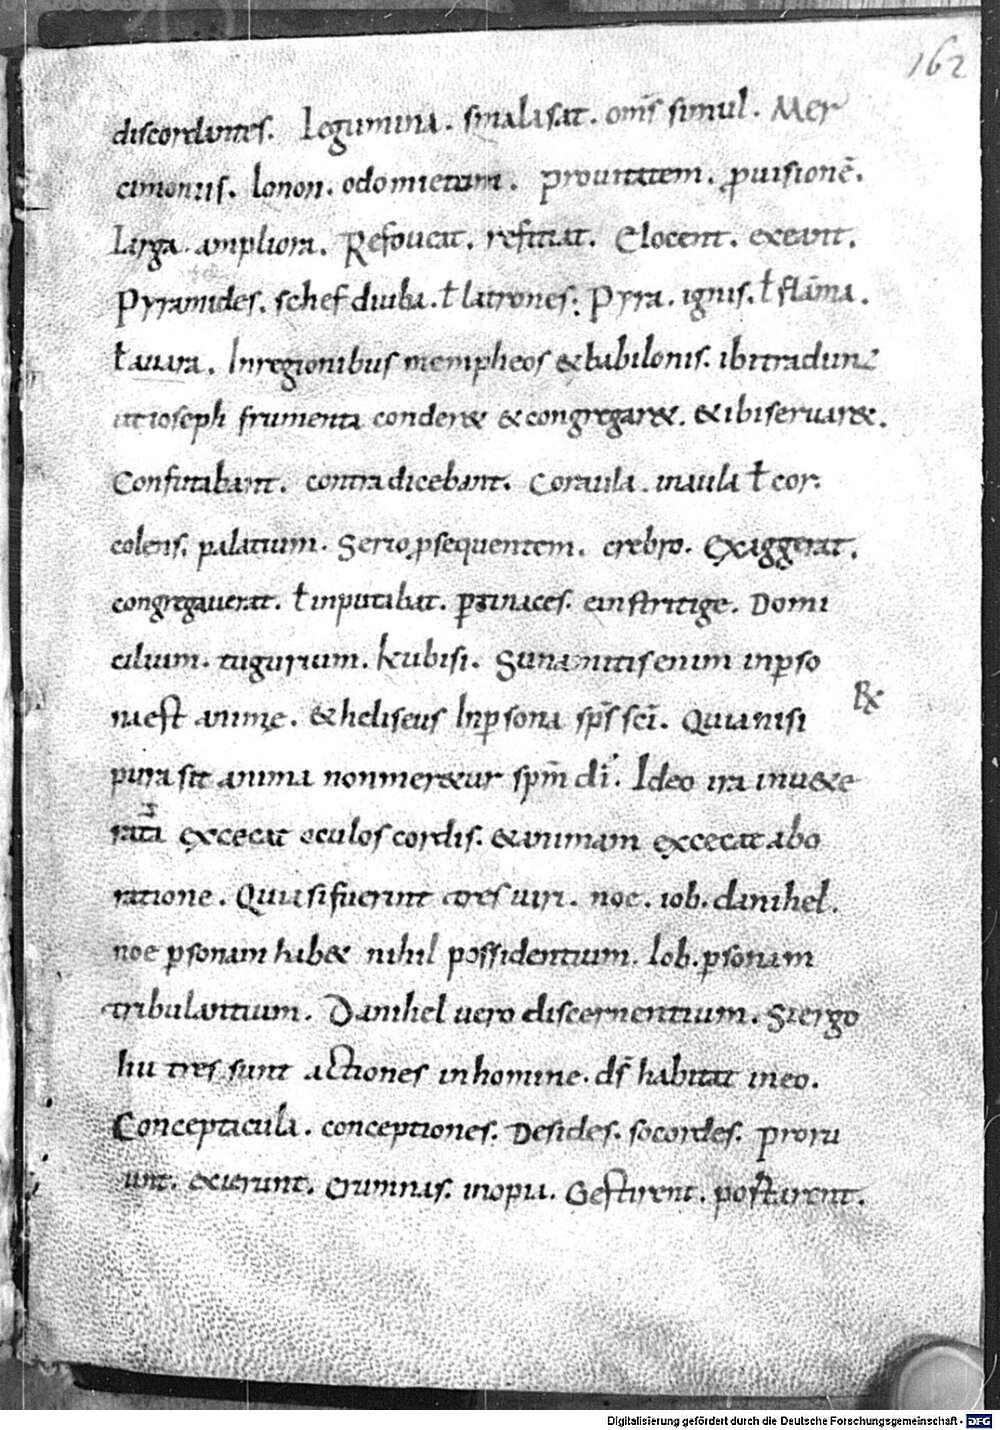 162
discordantes. Legumina. smalasat. om̄s simul. Mer
cimoniis. lonon. odomietum. prouitatem. ꝓuisionē.
Larga. ampliora. Refoueat. reficiat. Elocent. exeant.
Pyramides. schef diuba. ł latrones. Pyra. ignis. ł flāma.
ł auara. Inregionibus mempheos &babilonis. ibitradunt
utioseph frumenta conder& &congregar&. &ibiseruar&.
Confutabant. contradicebant. Coraula. inaula ł cor.
colens. palatium. Serio ꝓsequentem. crebro. Exaggerat.
congregauerat. ł inputabat. ꝑtinaces. einstritige. Domi
cilium. tugurium. kubisi. Sunamitisenim inꝑso
naest animę. &heliseus Inꝑsona sp̄s sc̄i. Quianisi
pura sit anima nonmer&ur sp̄m dī. Ideo ira inu&e
rata excęcat oculos cordis. &animam excęcat abo
ratione. Quiasifuerint tres uiri. noe. iob. danihel.
noe ꝑsonam hab& nihil possidentium. Iob. ꝑsonam
tribulantium. Danihel uero discernentium. Siergo
hii tres sunt actiones inhomine. ds̄ habitat ineo.
Conceptacula. conceptiones. Desides. socordes. Proru
unt. exierunt. Erumnas. inopia. Gestirent. postarent.
Rx
Digitalisierung gefördert durch die Deutsche Forschungsgemeinschaft - DFG